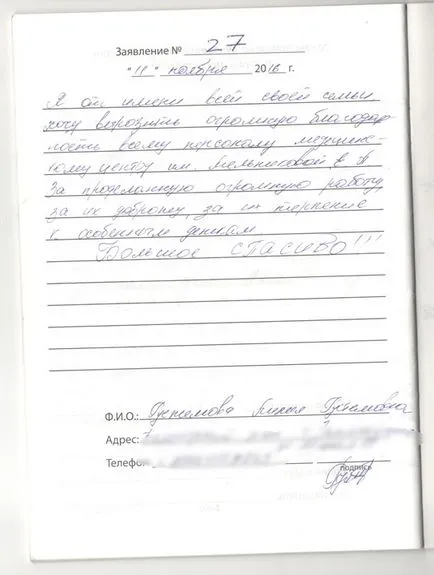 Заявление № 27
"11" ноября 2016 г.
Я от имени всей своей семьи
хочу выразить огромную благодар-
ность всему персоналу медицинс-
кому центру им. Мельниковой
За проделанную огромную работу,
за их доброту, за их терпение
к особенным деткам
Большое спасибо!!!
Ф.И.О.:
Адрес:
Телефо
подпись